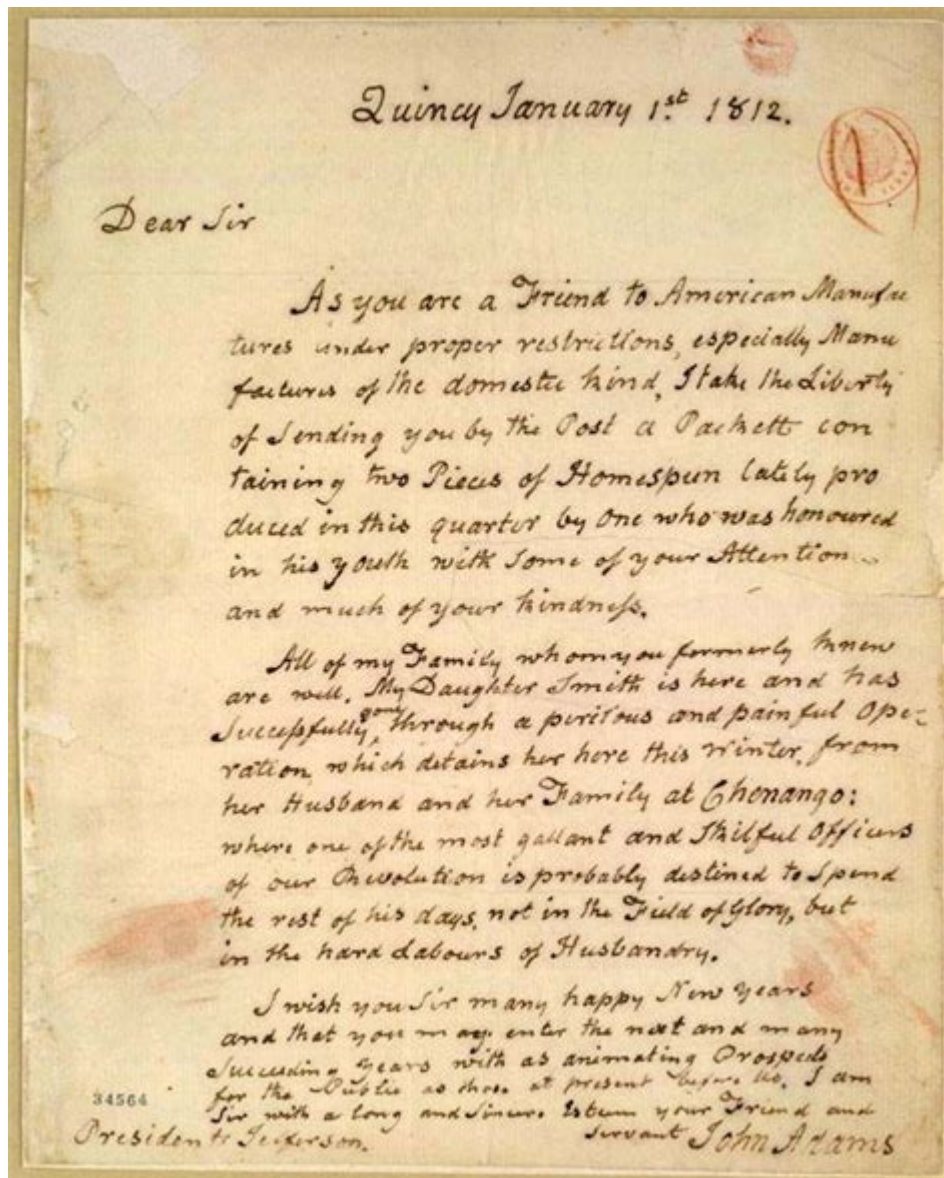 Quincy January 1st. 1812.
Dear Sir
As you are a Friend to American Manufac
tures under proper restrictions, especially Manu
factures of the domestic kind, I take the Liberty
of Sending you by the Post a Packett con
taining two Pieces of Homespun lately pro
duced in this quarter by One who was honoured
in his youth with Some of your Attention
and much of your kindness.
All of my Family whom you formerly knew
are well. My Daughter Smith is here and has
Successfully gone through a perilous and painful Ope-
ration, which detains her here this Winter, from
her Husband and her Family at Chenango:
where one of the most gallant and Skilful Officers
of our Revolution is probably destined to Spend
the rest of his days, not in the Field of Glory, but
in the hard Labours of Husbandry.
I wish you Sir many happy New Years
and that you may enter the next and many
Succeeding Years with as animating Prospects
for the Public as those at present before Us. I am
Sir with a long and Sincere Esteem your Friend and
Servant John Adams
34564
President Jefferson.